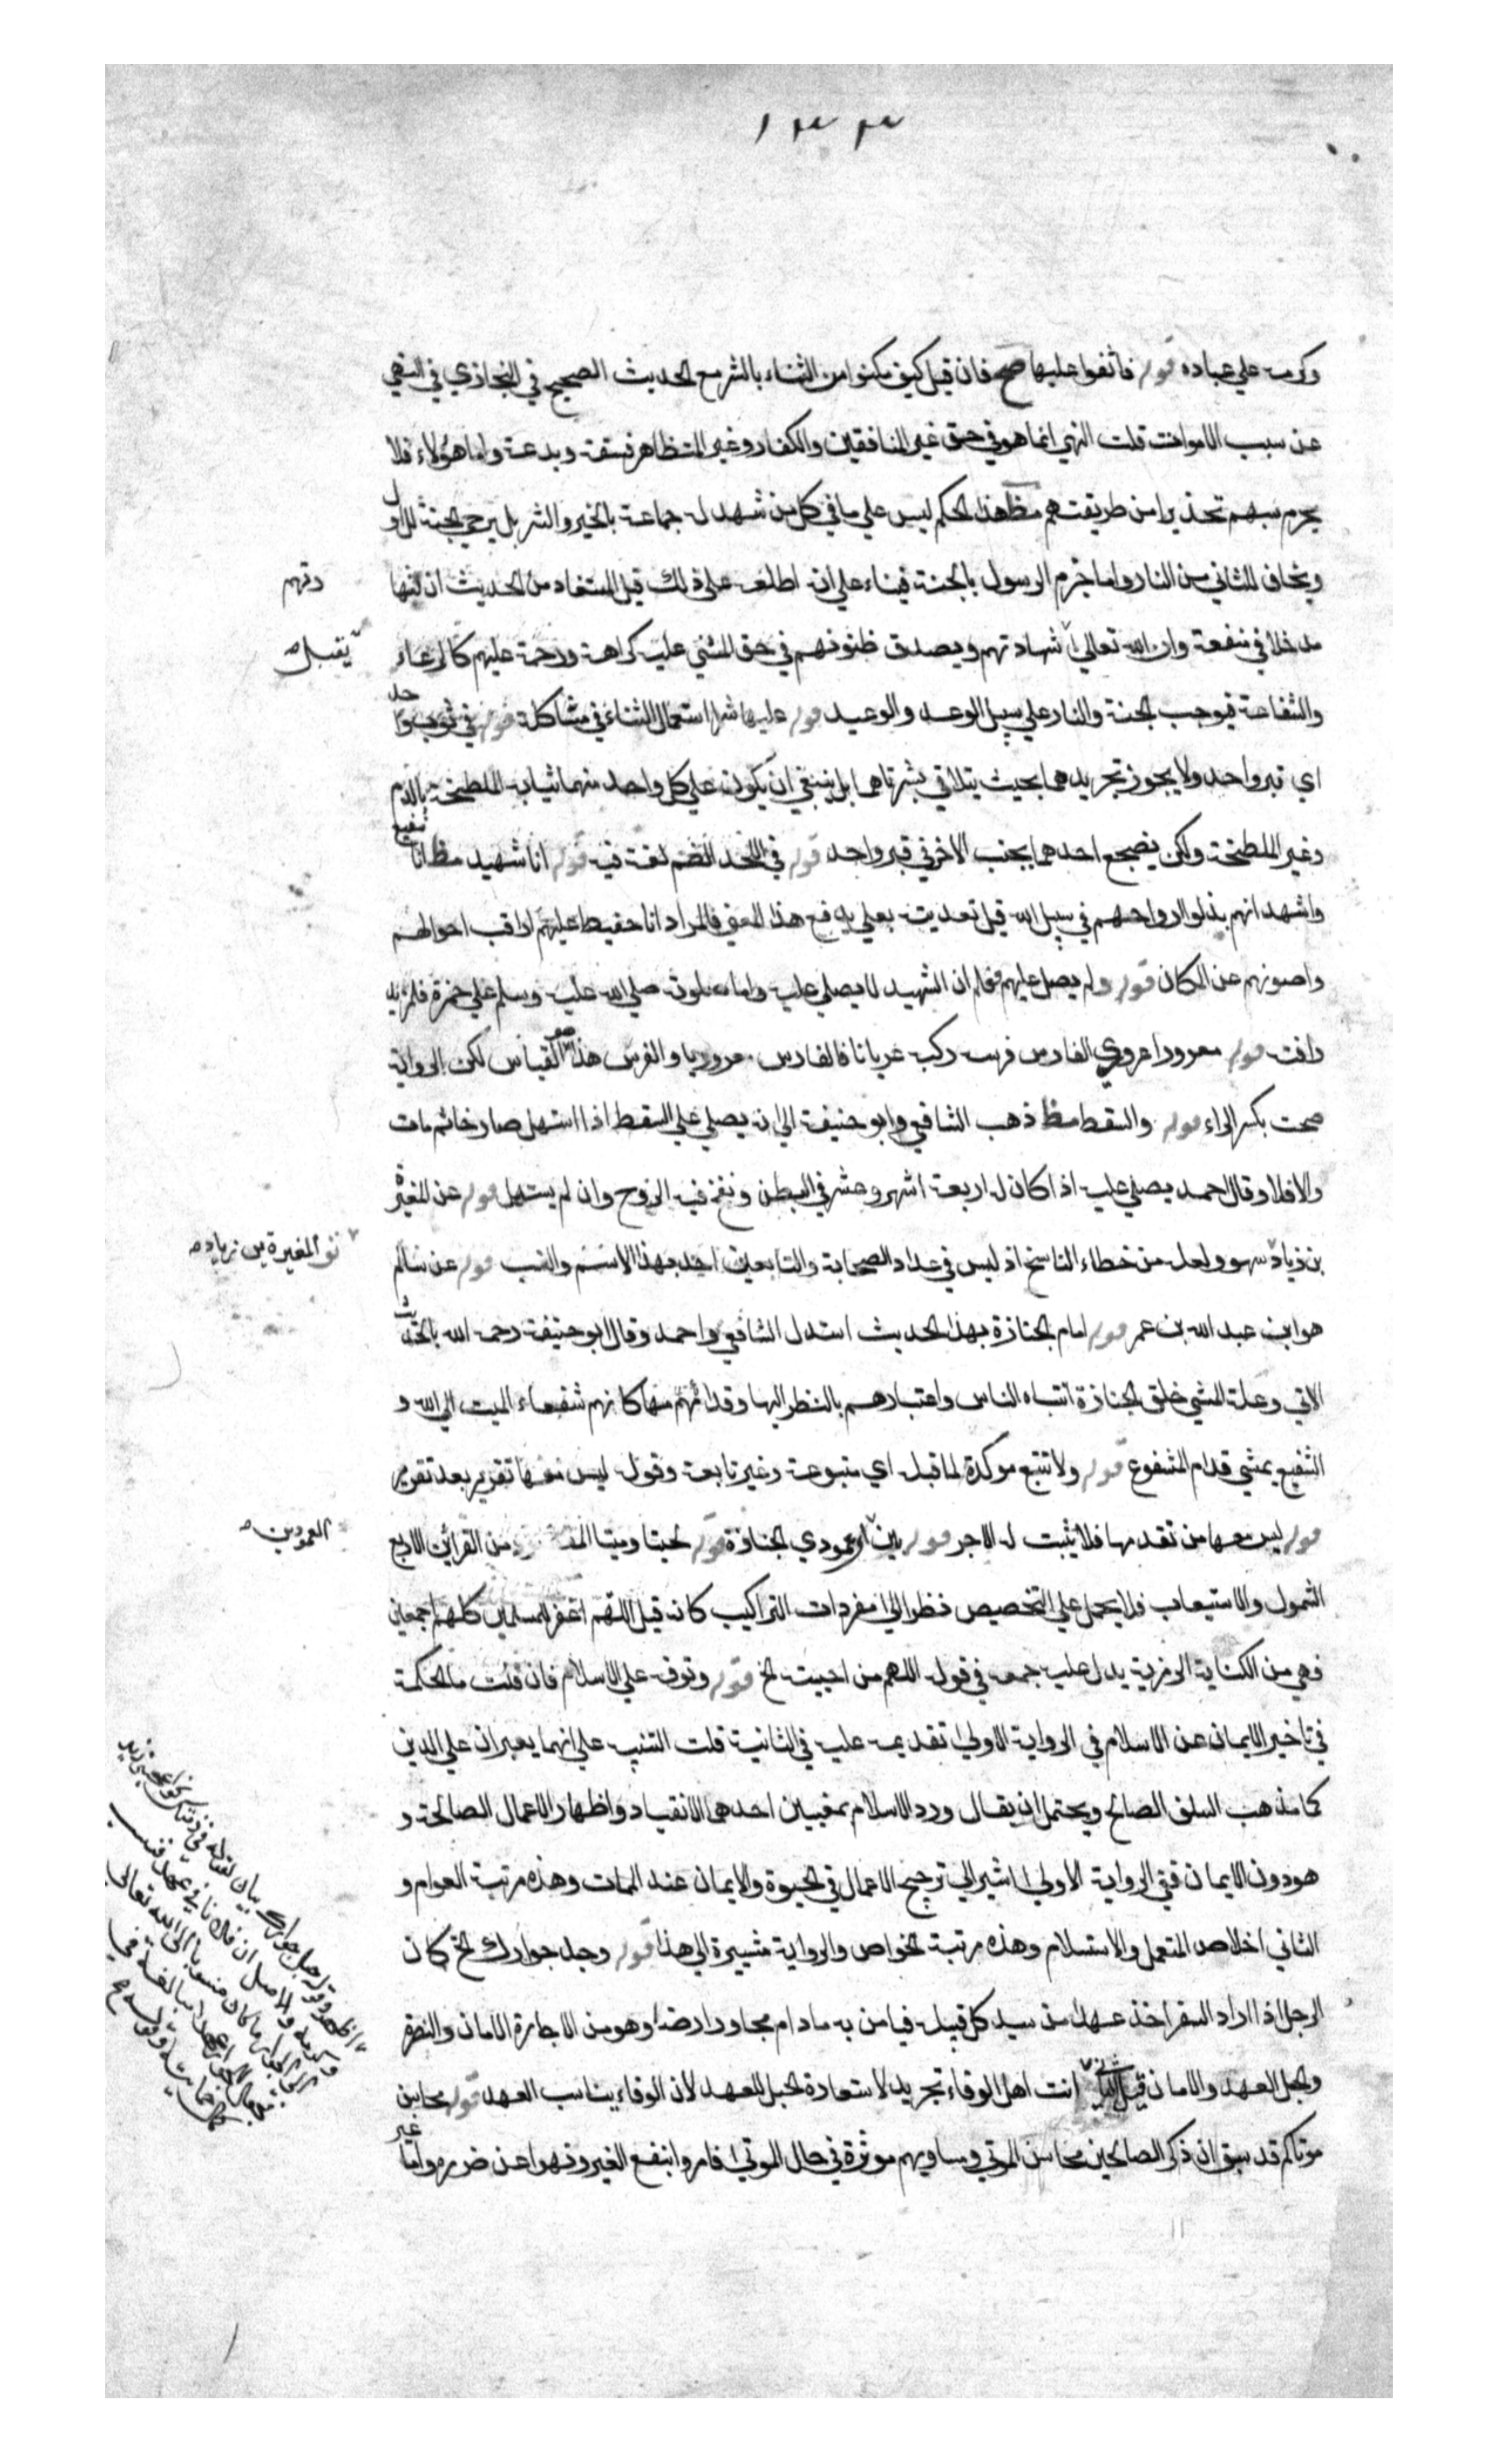 ١٣٣
وكرمه علي عباده قوله فاثنوا عليها صح فان قيل كيف مكنوا من الثناء بالشر مع الحديث الصحيح في البخاري في النهي
عن سبب الاموات قلت النهي انما هو في حق غير المنافقين والكفار وغير المتظاهر فسقه وبدعة واما هؤلاء فلا
يحرم سبهم تحذيرا من طريقتهم مظ هذا الحكم ليس علي ما في كل من شهد له جماعة بالخير والشر بل يرجي الجنة للاول
ويخاف للثاني من النار واما جزم الرسول بالجنة فبناء علي انه اطلعه علي ذلك قيل المستفاد من الحديث ان لثنائهم
مدخلا في منفعة وان الله تعالي يقبل شهادتهم ويصدق ظنونهم في حق المثني عليه كرامة ورحمة عليهم كالدعاء
والشفاعة فيوجب الجنة والنار علي سبيل الوعد والوعيد قوله عليها شرا استعمال الثناء في مشاكلة قوله في ثوب واحد
اي قبر واحد ولا يجوز تجريدهما بحيث يتلاقي بشرتاهما بل ينبغي ان يكون علي كل واحد منهما ثيابه الملطخة بالدم
وغير الملطخة ولكن يضجع احدهما بجنب الاخر في قبر واحد قوله في اللحد الضم لغة فيه قوله انا شهيد مظ انا شفيع
واشهد انهم بذلوا ارواحهم في سبيل الله قيل تعديته بعلي يدفع هذا المعني فالمراد انا حفيظ عليهم اراقب احوالهم
واصونهم عن المكان قوله ولم يصل عليهم فعلم ان الشهيد لا يصلي عليه واما صلوته صلي الله عليه وسلم علي حمزة فلمزيد
رافته قوله معرورا عروري الفارس فرسه ركبه عريانا فالفارس معروريا والفرس هذا هو القياس لكن الرواية
صحت بكسر الراء قوله والسقط مظ ذهب الشافعي وابو حنيفة الي انه يصلي علي السقط اذا استهل صارخا ثم مات
والا فلا وقال احمد يصلي عليه اذا كان له اربعة اشهر وعشر في البطن ونفخ فيه الروح وان لم يستهل قوله عن المغيرة
بن زياد سهو ولعله من خطاء الناسخ اذ ليس في عداد الصحابة والتابعين احد بهذا الاسم والنسب قوله عن سالم
هو ابن عبد الله بن عمر قوله امام الجنازة بهذا الحديث استدل الشافعي واحمد وقال ابو حنيفة رحمه الله بالحديث
الاتي وعلة المشي خلف الجنازة انتباه الناس واعتبارهم بالنظر اليها وقدامهم منها كانهم شفعاء الميت الي الله و
الشفيع يمشي قدام المشفوع قوله ولا تتبع موكدة لما قبله اي متبوعة وغير تابعة وقوله ليس معها تقرير بعد تقرير
قوله ليس معها من تقدمها فلا يثبت له الاجر قوله بين العمودين اي عمودي الجنازة قوله لحينا وميتنا من القرائن الاربع
الشمول والاستيعاب فلا يحمل علي التخصيص نظرا الي مفردات التراكيب كانه قيل اللهم اغفر للمسلمين كلهم اجمعين
فهي من الكناية الرمزية يدل عليه جمعه في قوله اللهم من احييت الخ قوله وتوفه علي الاسلام فان قلت ما الحكمة
في تاخير الايمان عن الاسلام في الرواية الاولي تقديمه عليه في الثانية قلت التنبيه علي انهما يعبران علي الدين
كما مذهب السلف الصالح ويحتمل ان يقال ورد الاسلام بمعنيين احدهما الانقياد واظهار الاعمال الصالحة و
هو دون الايمان ففي الرواية الاولي اشير الي ترجيح الاعمال في الحيوة والايمان عند الممات وهذه مرتبة العوام و
الثاني اخلاص العمل والاستسلام وهذه مرتبة الخواص والرواية مشيرة الي هذا قوله وحبل جوارك الخ كان
الرجل اذا اراد السفر اخذ عهدا من سيد كل قبيلة فيامن به ما دام مجاورا ارضه او هو من الاجارة الامان والنصر
والحبل العهد والامان قيل انت اهل الوفاء تجريد لاستعارة الحبل للعهد لان الوفاء يناسب العهد قوله محاسن
موتاكم قد سبق ان ذكر الصالحين محاسن الموتي ومساويهم موثرة في حال الموتي فامروا بنفع الغير ونهوا عن ضرره واما غير
وقهم
يقبل
المغيرة بن زياده
العمودين